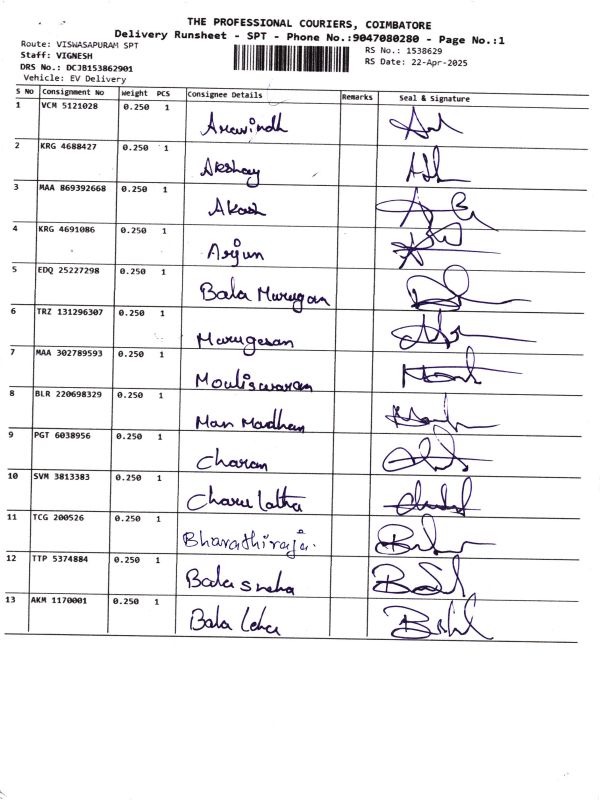 THE PROFESSIONAL COURIERS, COIMBATORE
Delivery Runsheet - SPT - Phone No.:9047080280 - Page No.:1
Route: VISWASAPURAM SPT
RS No.: 1538629
Staff: VIGNESH
RS Date: 22-Apr-2025
DRS No.: DCJB153862901
Vehicle: EV Delivery
S No Consignment No Weight PCS Consignee Details Remarks Seal & Signature
1 VCM 5121028 0.250 1 Aravindh
2 KRG 4688427 0.250 1 Akshay
3 MAA 869392668 0.250 1 Akash
4 KRG 4691086 0.250 1 Arjun
5 EDQ 25227298 0.250 1 Bala Murugan
6 TRZ 131296307 0.250 1 Murugesan
7 MAA 302789593 0.250 1 Mouliswaran
8 BLR 220698329 0.250 1 Man Madhan
9 PGT 6038956 0.250 1 Charan
10 SVM 3813383 0.250 1 Charu latha
11 TCG 200526 0.250 1 Bharathiraja
12 TTP 5374884 0.250 1 Bala sneha
13 AKM 1170001 0.250 1 Bala